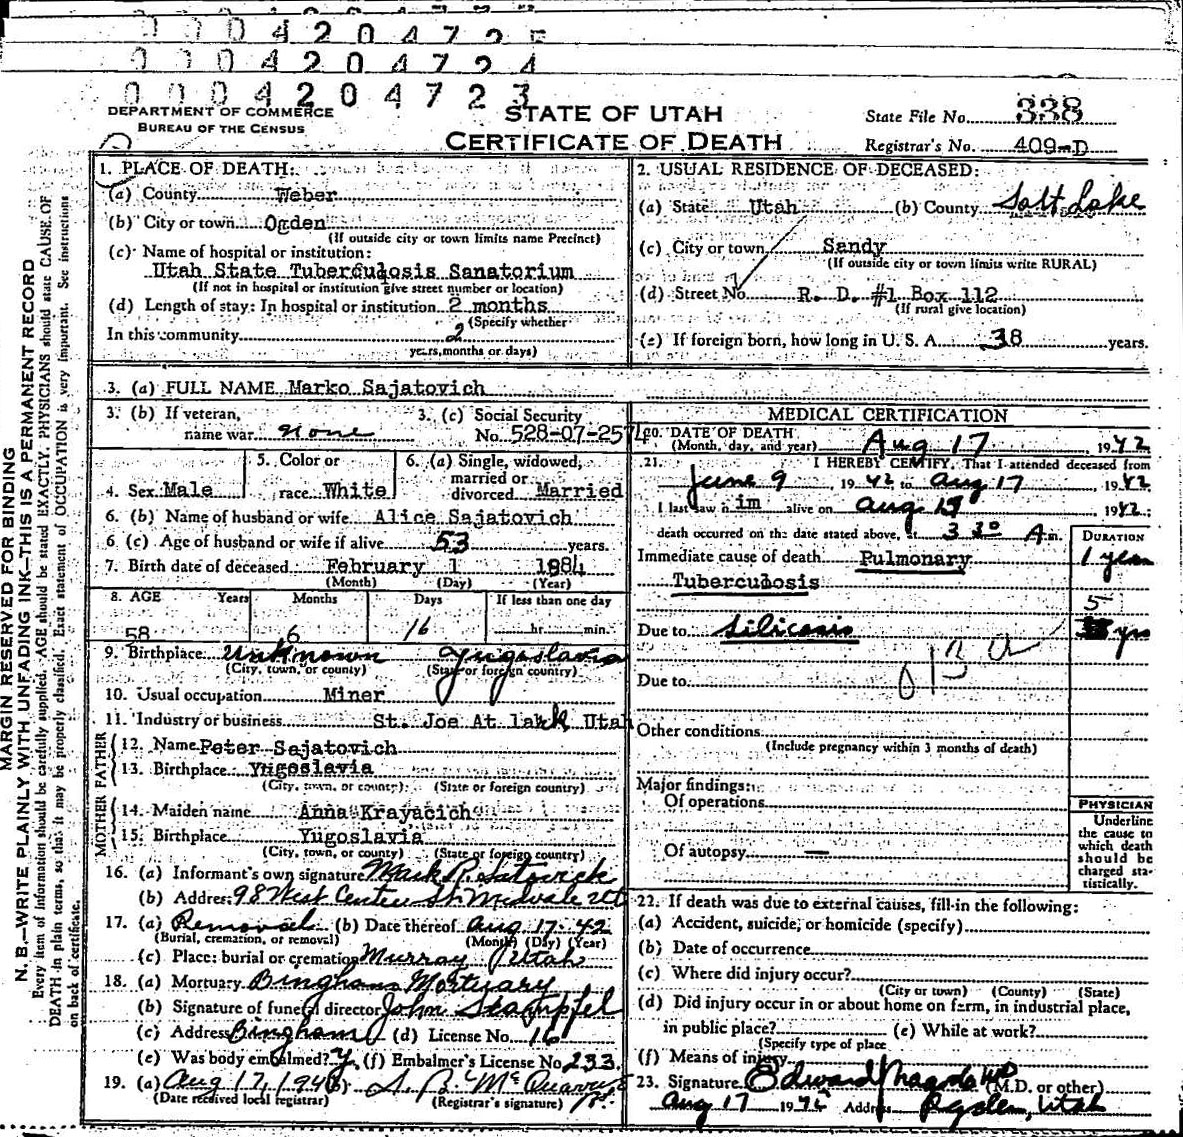 0 0 0 4 2 0 4 7 2 5
0 0 0 4 2 0 4 7 2 4
0 0 0 4 2 0 4 7 2 3
DEPARTMENT OF COMMERCE
BUREAU OF THE CENSUS
STATE OF UTAH
CERTIFICATE OF DEATH
State File No. 338
Registrar's No. 409-D
MARGIN RESERVED FOR BINDING
N. B.—WRITE PLAINLY WITH UNFADING INK—THIS IS A PERMANENT RECORD
Every item of information should be carefully supplied. AGE should be stated EXACTLY. PHYSICIANS should state CAUSE OF
DEATH in plain terms, so that it may be properly classified. Exact statement of OCCUPATION is very important. See instructions
on back of certificate.
1. PLACE OF DEATH:
(a) County Weber
(b) City or town Ogden
(If outside city or town limits name Precinct)
(c) Name of hospital or institution:
Utah State Tuberculosis Sanatorium
(If not in hospital or institution give street number or location)
(d) Length of stay: In hospital or institution 2 months
(Specify whether
In this community 2
years, months or days)
2. USUAL RESIDENCE OF DECEASED:
(a) State Utah (b) County Salt Lake
(c) City or town Sandy
(If outside city or town limits write RURAL)
(d) Street No. R. D. #1 Box 112
(If rural give location)
(e) If foreign born, how long in U. S. A. 38 years.
3. (a) FULL NAME Marko Sajatovich
3. (b) If veteran,
name war none
3. (c) Social Security
No. 528-07-257
4. Sex Male
5. Color or
race White
6. (a) Single, widowed,
married or
divorced Married
6. (b) Name of husband or wife Alice Sajatovich
6 (c) Age of husband or wife if alive 53 years.
7. Birth date of deceased February 1 1884
(Month) (Day) (Year)
8. AGE Years Months Days If less than one day
58 6 16 hr. min.
9. Birthplace Unknown Yugoslavia
(City, town, or county) (State or foreign country)
10. Usual occupation Miner
11. Industry or business St. Joe At lark Utah
FATHER
12. Name Peter Sajatovich
13. Birthplace Yugoslavia
(City, town, or county) (State or foreign country)
MOTHER
14. Maiden name Anna Krayacich
15. Birthplace Yugoslavia
(City, town, or county) (State or foreign country)
16. (a) Informant's own signature Mark R.
(b) Address 98 West Center St. Midvale Ut
17. (a) Removal (b) Date thereof Aug 17-42
(Burial, cremation, or removal) (Month) (Day) (Year)
(c) Place: burial or cremation Murray Utah
18. (a) Mortuary Bingham Mortuary
(b) Signature of funeral director John Stampfel
(c) Address Bingham (d) License No. 16
(e) Was body embalmed? y (f) Embalmer's License No. 233
19. (a) Aug 17, 194 (b)
(Date received local registrar) (Registrar's signature)
MEDICAL CERTIFICATION
20. DATE OF DEATH
(Month, day, and year) Aug 17 1942
21. I HEREBY CERTIFY, That I attended deceased from
June 9 1942 to Aug 17 1942
I last saw him alive on Aug 1942;
death occurred on the date stated above, at 3 30 A m.
DURATION
Immediate cause of death Pulmonary 1 year
Tuberculosis
5
Due to Silicosis yrs
013 a
Due to
Other conditions
(Include pregnancy within 3 months of death)
Major findings:
Of operations
Of autopsy —
PHYSICIAN
Underline
the cause to
which death
should be
charged sta-
tistically.
22. If death was due to external causes, fill in the following:
(a) Accident, suicide, or homicide (specify)
(b) Date of occurrence
(c) Where did injury occur?
(City or town) (County) (State)
(d) Did injury occur in or about home on farm, in industrial place,
in public place? (e) While at work?
(Specify type of place
(f) Means of injury
23. Signature Edward MD (M.D. or other)
Aug 17 1942 Address Ogden, Utah